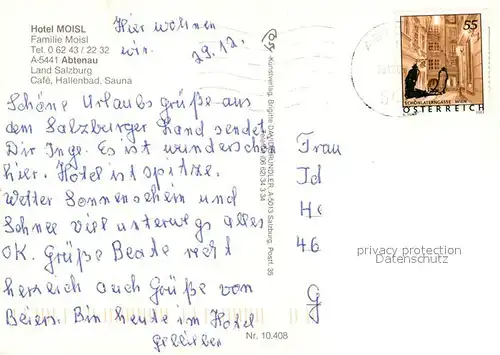 Hotel MOISL
Familie Moisl
Tel. 0 62 43 / 22 32
A-5441 Abtenau
Land Salzburg
Café, Hallenbad, Sauna
Hier wohnen
wir. 29.12.
Schöne Urlaubsgrüße aus
dem Salzburger Land sendet
Dir Inge. Es ist wunderschön
hier. Hotel ist spitze.
Wetter Sonnenschein und
Schnee viel unterwegs alles
OK. Grüße Beate recht
herzlich auch Grüße von
Beiers. Bin heute im Hotel
geblieben
Kunstverlag, Brigitte
A-5013 Salzburg, Postf. 35
Nr. 10.408
55
SCHÖNLATERNGASSE WIEN
ÖSTERREICH
Frau
Id
He
46
G
privacy protection
Datenschutz